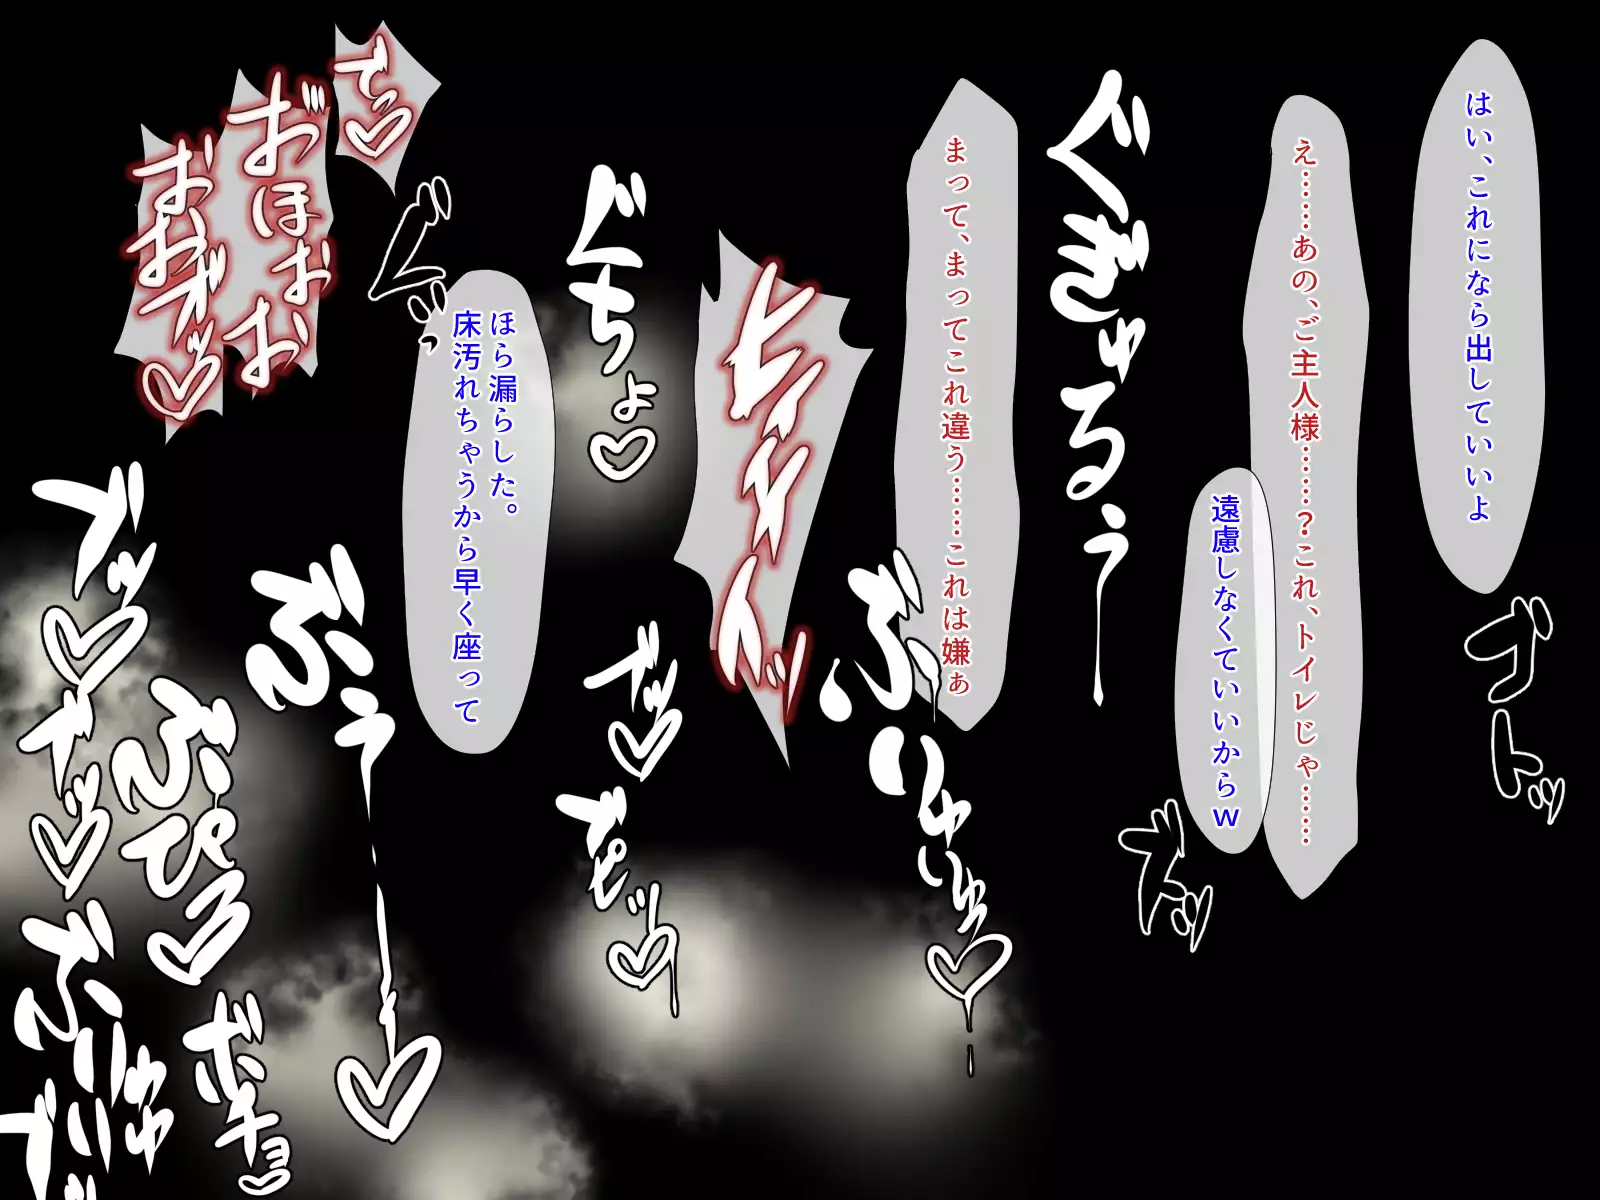 はい、これになら出していいよ
ゴトッ
え……あの、ご主人様……？これ、トイレじゃ……
遠慮しなくていいからｗ
ズドッ
ぐぎゅるぅー
まって、まってこれ違う……これは嫌ぁ
ぶりゅりゅっ♡
ヒィイイイッ
ぐちょ♡
ブッ♡
ブピッ♡
ほら漏らした。
床汚れちゃうから早く座って
ぐいっ
でっ♡
おほぉおお
おおオッ♡
ぶぅーー♡
ブッ♡
ブッ♡
ぶぴろ♡
ボチョ♡
ぶりゅりゅ